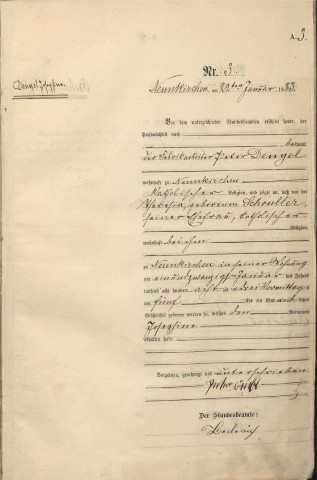 A. 3
Nr. 3.
Neunkirchen, am 22ten Januar 1883.
Dengel Josephine
Vor dem unterzeichneten Standesbeamten erschien heute, der
Persönlichkeit nach
kannt,
der Fabrikarbeiter Peter Dengel
wohnhaft zu Neunkirchen
katholischer Religion, und zeigte an, daß von der
Theresia, geborenen Schouller,
seiner Ehefrau, katholischer
Religion,
wohnhaft bei ihm
zu Neunkirchen in seiner Wohnung
am einundzwanzigsten Januar des Jahres
tausend acht hundert acht
um fünf Uhr ein Kind
Geschlechts geboren worden sei, welches den Vornamen
Josephine
erhalten habe
Vorgelesen, genehmigt und unterschrieben
Der Standesbeamte: